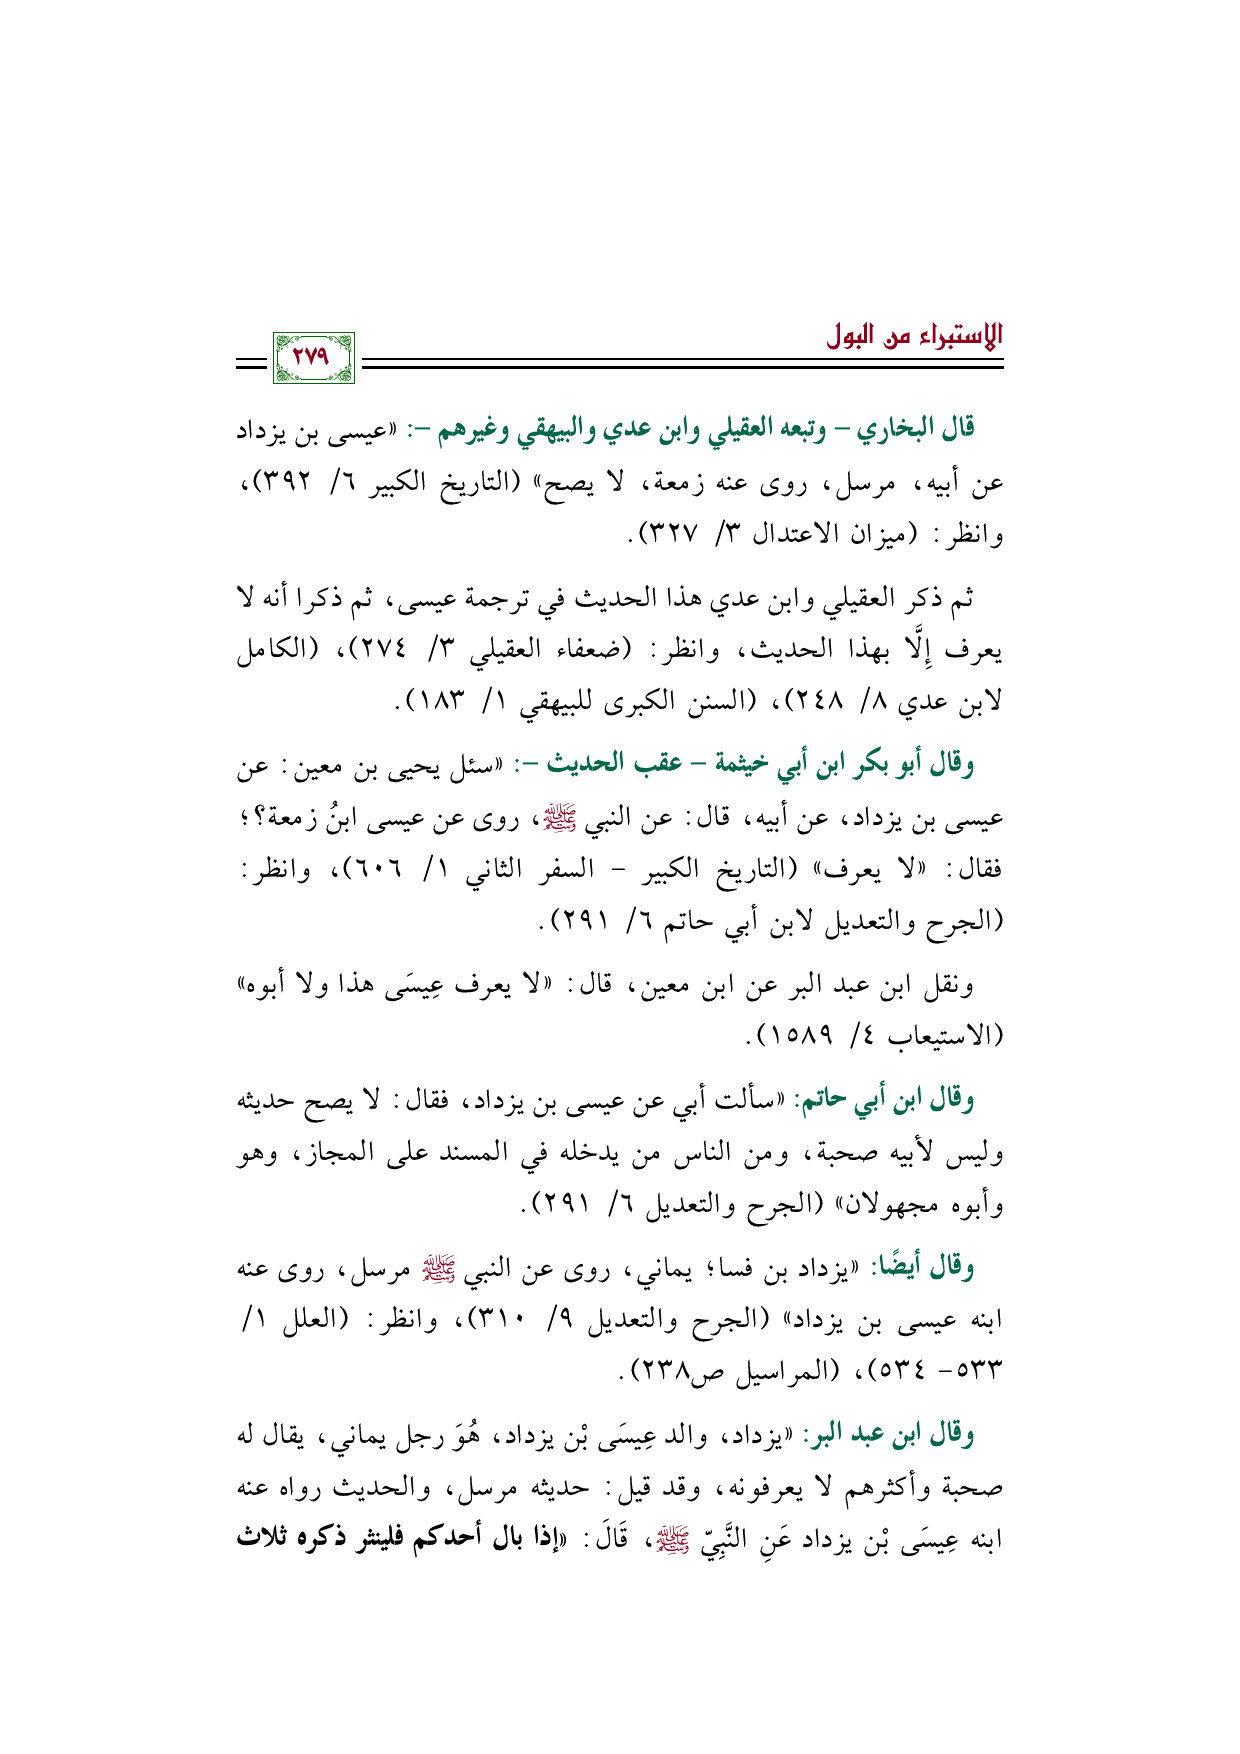 الاستبراء من البول
٢٧٩
قال البخاري – وتبعه العقيلي وابن عدي والبيهقي وغيرهم –: «عيسى بن يزداد
عن أبيه، مرسل، روى عنه زمعة، لا يصح» (التاريخ الكبير ٦/ ٣٩٢)،
وانظر: (ميزان الاعتدال ٣/ ٣٢٧).
ثم ذكر العقيلي وابن عدي هذا الحديث في ترجمة عيسى، ثم ذكرا أنه لا
يعرف إِلَّا بهذا الحديث، وانظر: (ضعفاء العقيلي ٣/ ٢٧٤)، (الكامل
لابن عدي ٨/ ٢٤٨)، (السنن الكبرى للبيهقي ١/ ١٨٣).
وقال أبو بكر ابن أبي خيثمة – عقب الحديث –: «سئل يحيى بن معين: عن
عيسى بن يزداد، عن أبيه، قال: عن النبي ﷺ، روى عن عيسى ابنُ زمعة؟؛
فقال: «لا يعرف» (التاريخ الكبير – السفر الثاني ١/ ٦٠٦)، وانظر:
(الجرح والتعديل لابن أبي حاتم ٦/ ٢٩١).
ونقل ابن عبد البر عن ابن معين، قال: «لا يعرف عِيسَى هذا ولا أبوه»
(الاستيعاب ٤/ ١٥٨٩).
وقال ابن أبي حاتم: «سألت أبي عن عيسى بن يزداد، فقال: لا يصح حديثه
وليس لأبيه صحبة، ومن الناس من يدخله في المسند على المجاز، وهو
وأبوه مجهولان» (الجرح والتعديل ٦/ ٢٩١).
وقال أيضًا: «يزداد بن فسا؛ يماني، روى عن النبي ﷺ مرسل، روى عنه
ابنه عيسى بن يزداد» (الجرح والتعديل ٩/ ٣١٠)، وانظر: (العلل ١/
٥٣٣– ٥٣٤)، (المراسيل ص٢٣٨).
وقال ابن عبد البر: «يزداد، والد عِيسَى بْن يزداد، هُوَ رجل يماني، يقال له
صحبة وأكثرهم لا يعرفونه، وقد قيل: حديثه مرسل، والحديث رواه عنه
ابنه عِيسَى بْن يزداد عَنِ النَّبِيّ ﷺ، قَالَ: «إذا بال أحدكم فلينثر ذكره ثلاث